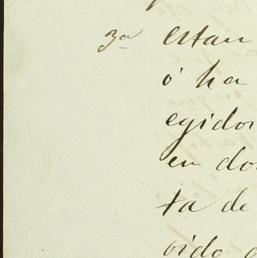 3a estan
ó ha
egidor
en do
ta de
oido